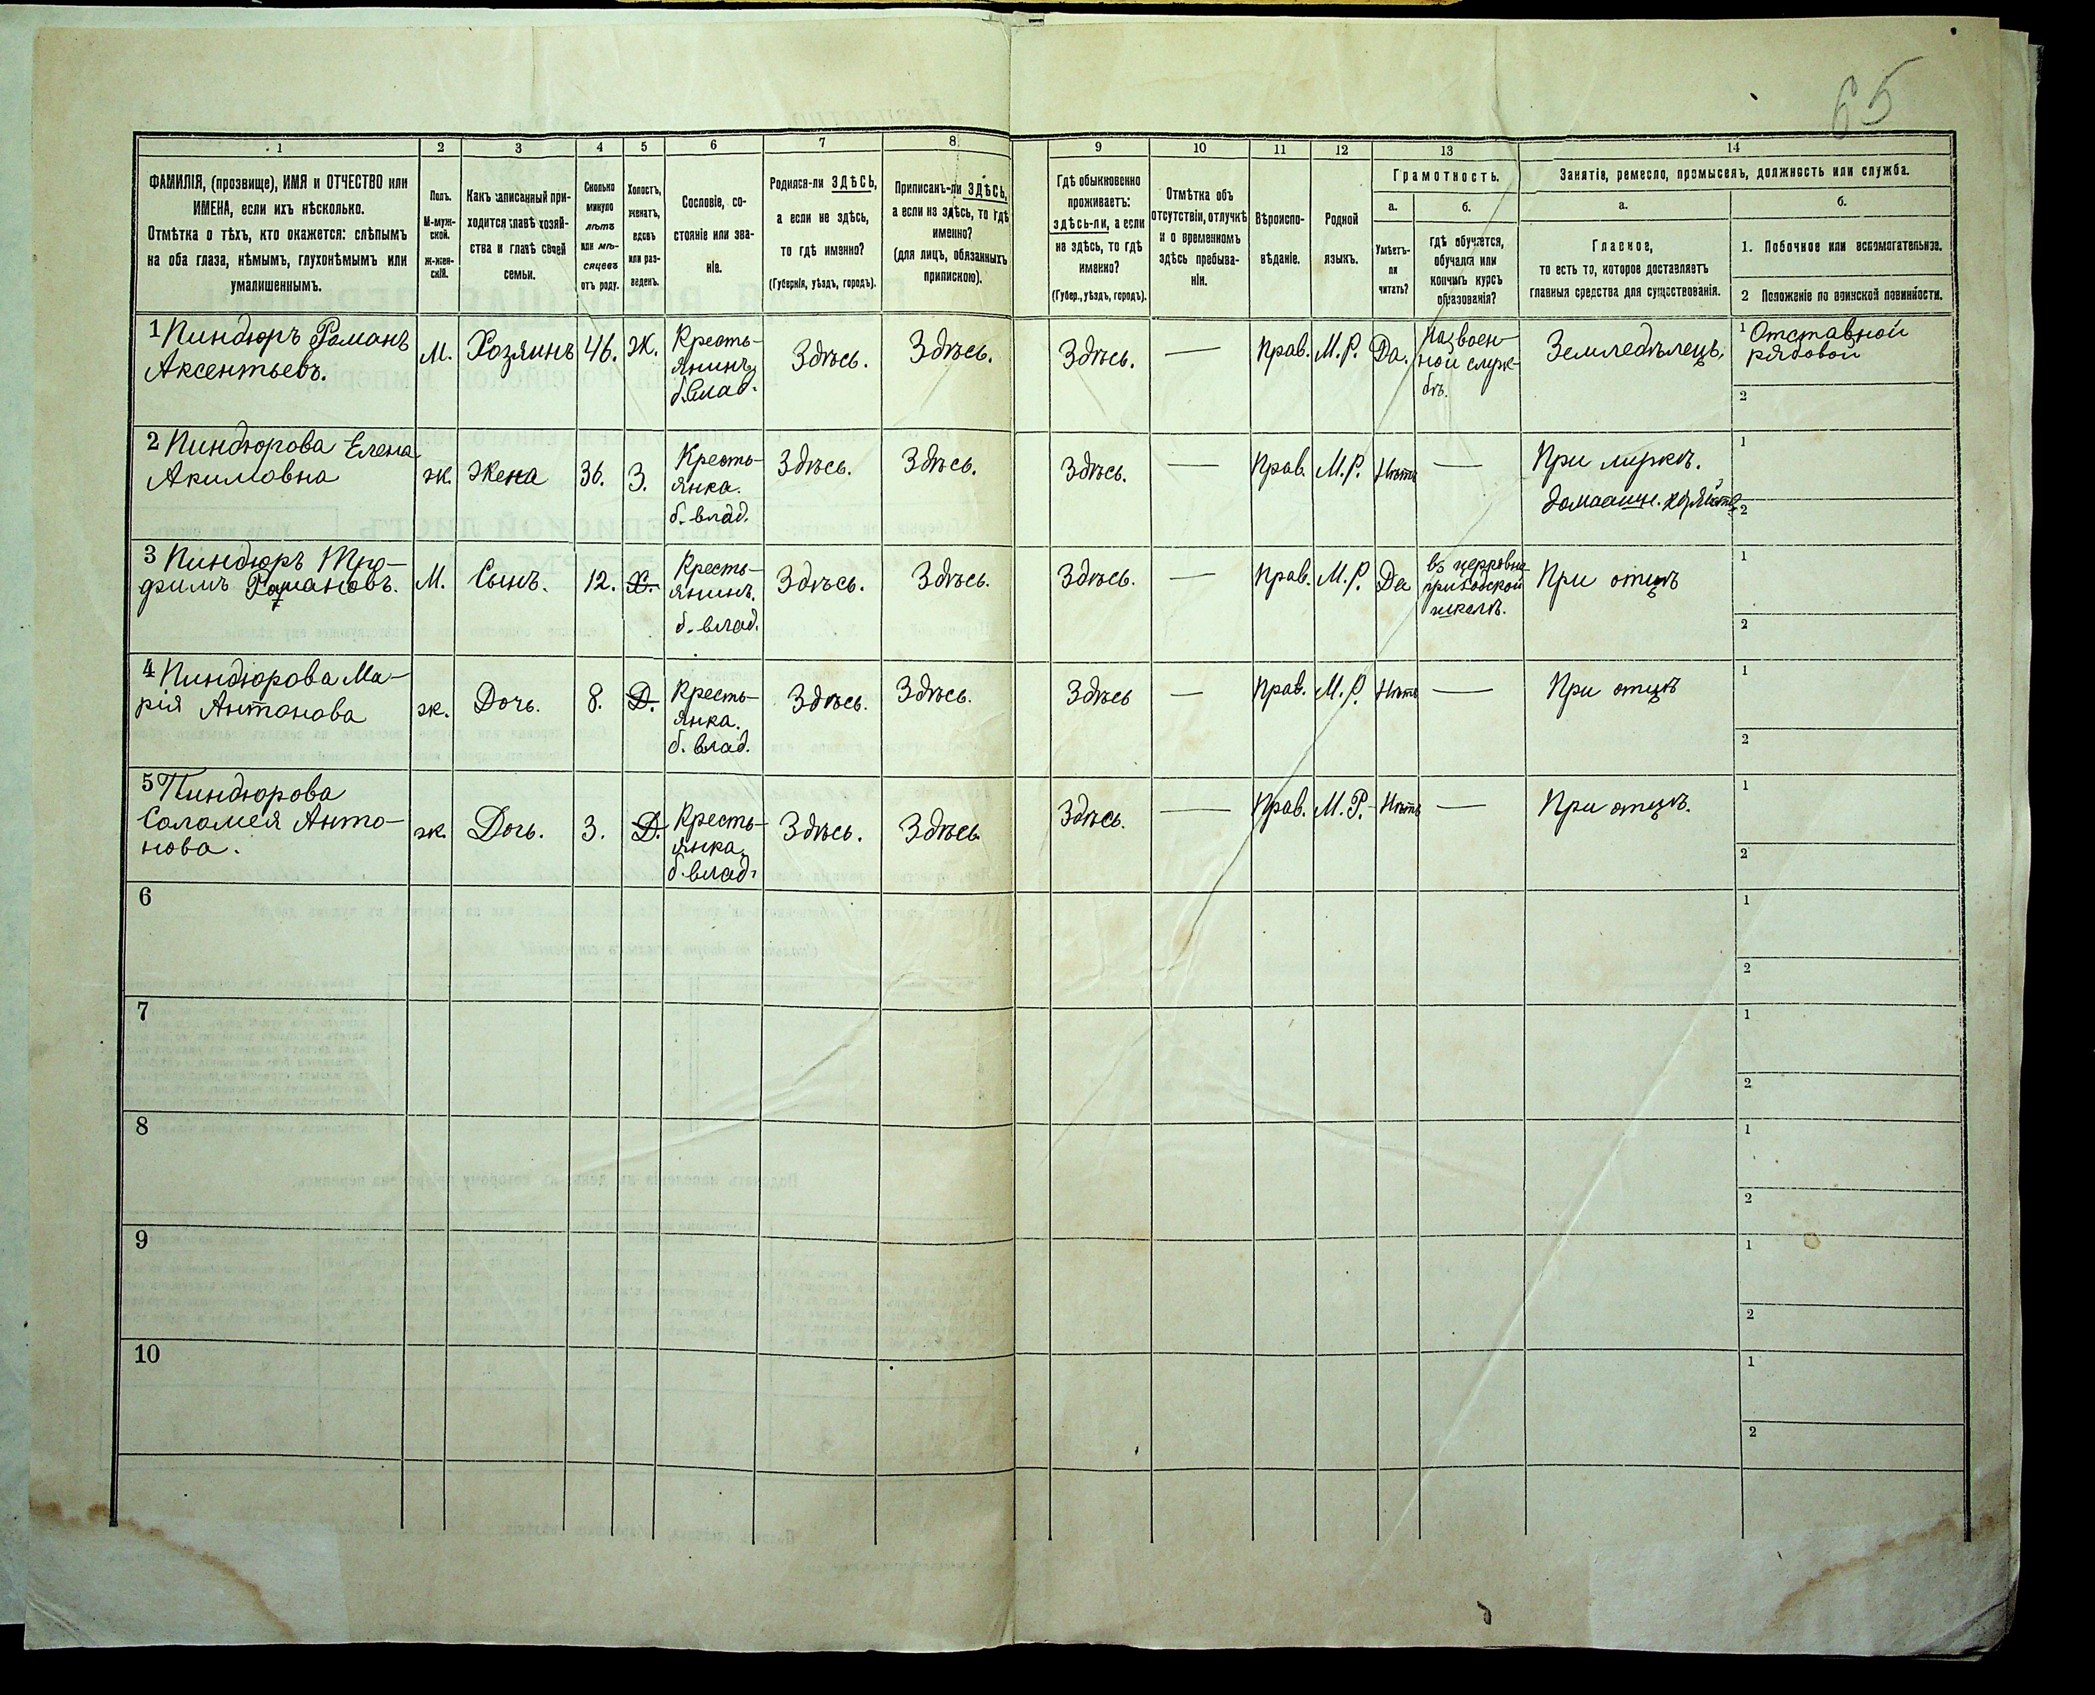 65
1 2 3 4 5 6 7 8 9 10 11 12 13 14
ФАМИЛІЯ, (прозвище), ИМЯ и ОТЧЕСТВО или
ИМЕНА, если ихъ нѣсколько.
Отмѣтка о тѣхъ, кто окажется: слѣпымъ
на оба глаза, нѣмымъ, глухонѣмымъ или
умалишеннымъ.
Полъ.
М-муж-
ской.
Ж-жен-
скій.
Какъ записанный при-
ходится главѣ хозяй-
ства и главѣ своей
семьи.
Сколько
минуло
лѣтъ
или мѣ-
сяцевъ
отъ роду.
Холостъ,
женатъ,
вдовъ
или раз-
веденъ.
Сословіе, со-
стояніе или зва-
ніе.
Родился-ли ЗДѢСЬ,
а если не здѣсь,
то гдѣ именно?
(Губернія, уѣздъ, городъ).
Приписанъ-ли ЗДѢСЬ,
а если не здѣсь, то гдѣ
именно?
(для лицъ, обязанныхъ
припискою).
Гдѣ обыкновенно
проживаетъ:
здѣсь-ли, а если
не здѣсь, то гдѣ
именно?
(Губер., уѣздъ, городъ).
Отмѣтка объ
отсутствіи, отлучкѣ
и о временномъ
здѣсь пребыва-
ніи.
Вѣроиспо-
вѣданіе.
Родной
языкъ.
Грамотность.
а. б.
Умѣетъ-
ли
читать?
гдѣ обучается,
обучался или
кончилъ курсъ
образованія?
Занятіе, ремесло, промыселъ, должность или служба.
а. б.
Главное,
то есть то, которое доставляетъ
главныя средства для существованія.
1. Побочное или вспомогательное.
2 Положеніе по воинской повинности.
1 Пиндюръ Романъ
Аксентьевъ.
М.
Хозяинъ
46.
Ж.
Кресть-
янинъ
б. влад.
Здѣсь.
Здѣсь.
Здѣсь.
—
Прав.
М.Р.
Да.
На воен-
ной служ-
бѣ.
Земледѣлецъ.
1 Отставной
рядовой
2
2 Пиндюрова Елена
Акимовна
ж.
Жена
36.
З.
Кресть-
янка.
б. влад.
Здѣсь.
Здѣсь.
Здѣсь.
—
Прав.
М.Р.
Нѣтъ
—
При
домашн.
1
2
3 Пиндюръ Тро-
фимъ Романовъ.
М.
Сынъ.
12.
Х.
Кресть-
янинъ.
б. влад.
Здѣсь.
Здѣсь.
Здѣсь.
—
Прав.
М.Р.
Да
въ церковно
приходской
школѣ.
При отцѣ
1
2
4 Пиндюрова Ма-
рія Антонова
ж.
Дочь.
8.
Д.
Кресть-
янка.
б. влад.
Здѣсь.
Здѣсь.
Здѣсь
—
Прав.
М.Р.
Нѣтъ
—
При отцѣ
1
2
5 Пиндюрова
Саломея Анто-
нова.
ж.
Дочь.
3.
Д.
Кресть-
янка.
б. влад.
Здѣсь.
Здѣсь.
Здѣсь.
—
Прав.
М.Р.
Нѣтъ
—
При отцѣ.
1
2
6
1
2
7
1
2
8
1
2
9
1
2
10
1
2